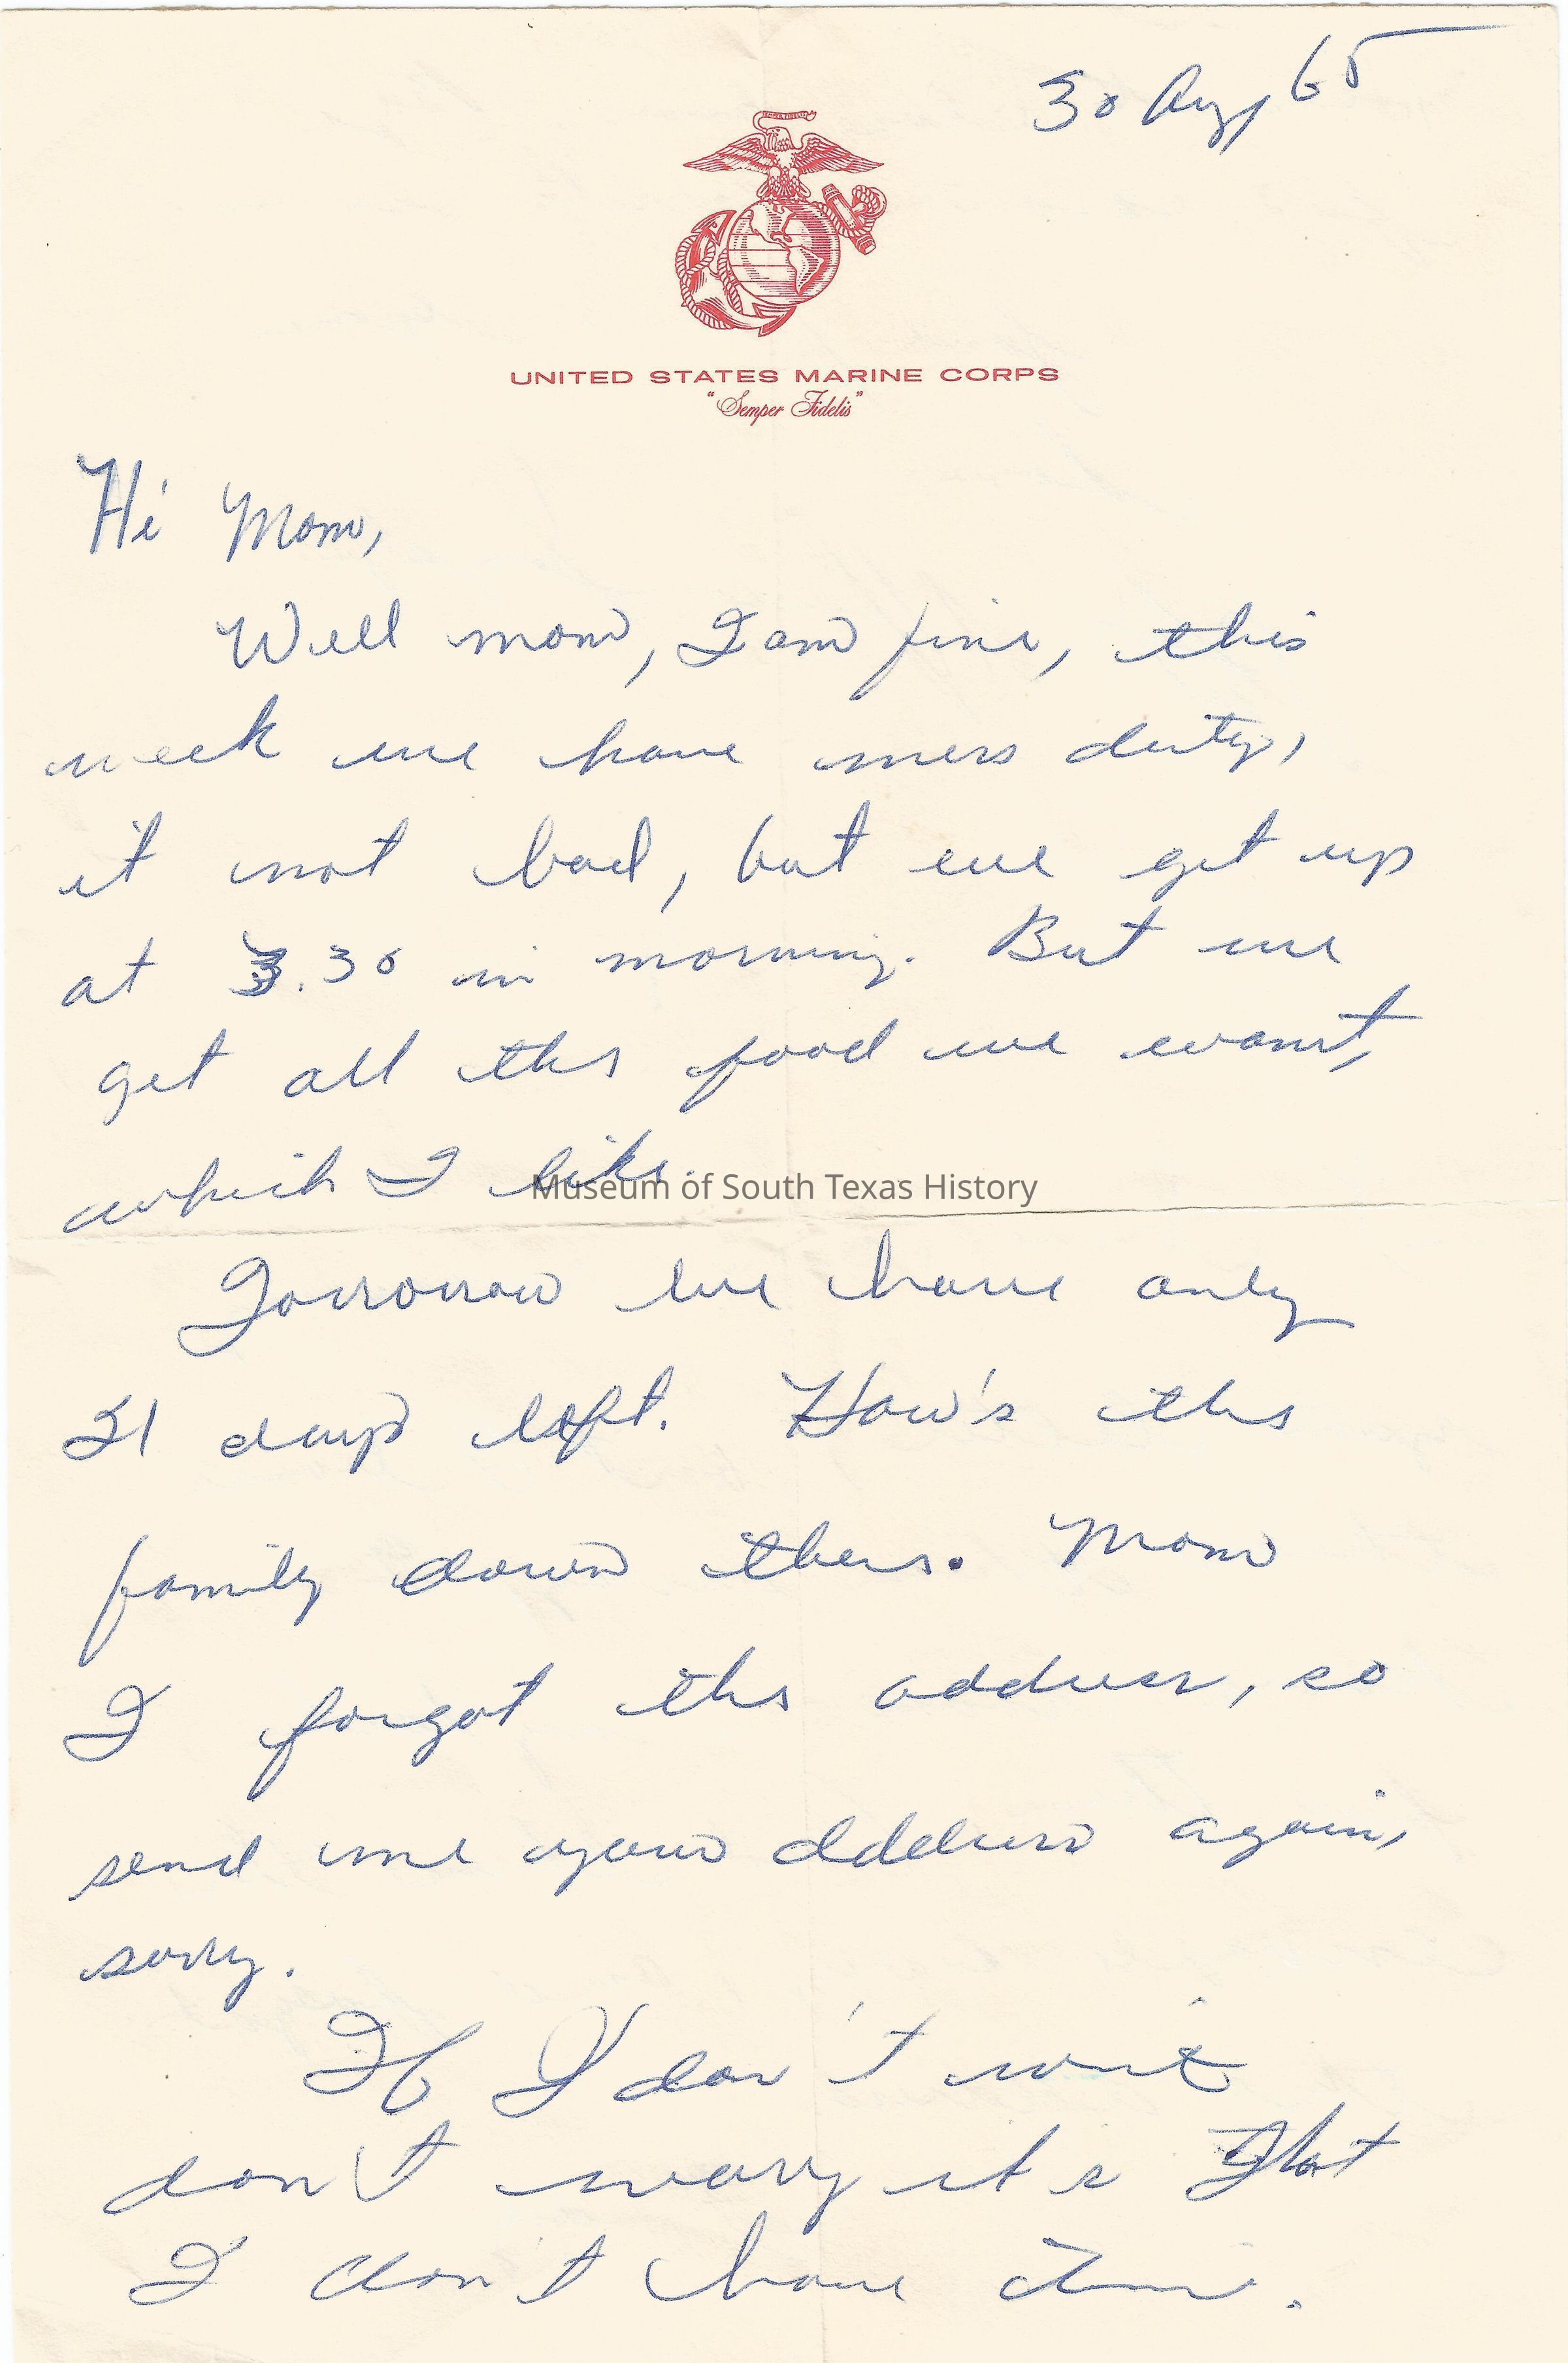 30 Aug, 65
UNITED STATES MARINE CORPS
"Semper Fidelis"
Hi Mom,
Well mom, I am fine, this
week we have mess duty,
it not bad, but we get up
at 3.30 in morning. But we
get all the food we want,
which I like.
Museum of South Texas History
Tomorrow we have only
21 days left. How's the
family down there. Mom
I forgot the address, so
send me your address again,
sorry.
If I don't write
don't worry it's that
I don't have time.